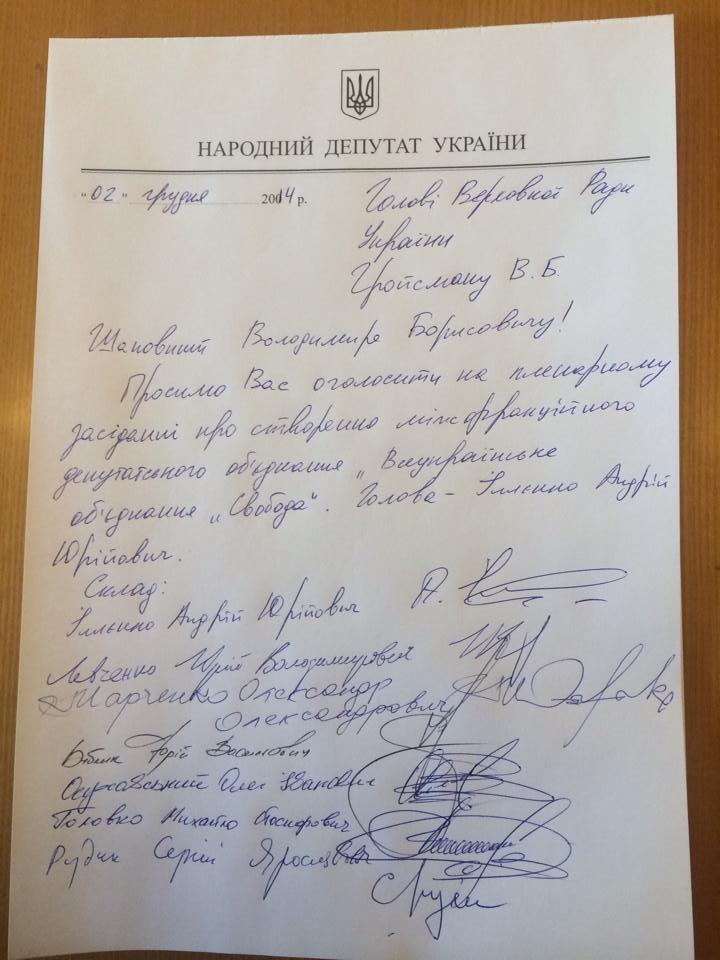 НАРОДНИЙ ДЕПУТАТ УКРАЇНИ
"02" грудня 2014 р.
Голові Верховної Ради
України
Гройсману В.Б.
Шановний Володимире Борисовичу!
Просимо Вас оголосити на пленарному
засіданні про створення міжфракційного
депутатського об'єднання „Всеукраїнське
об'єднання „Свобода". Голова - Іллєнко Андрій
Юрійович.
Склад:
Іллєнко Андрій Юрійович
Левченко Юрій Володимирович
Марченко Олександр
Олександрович
Бублик Юрій Васильович
Осуховський Олег Іванович
Головко Михайло Йосифович
Рудик Сергій Ярославович